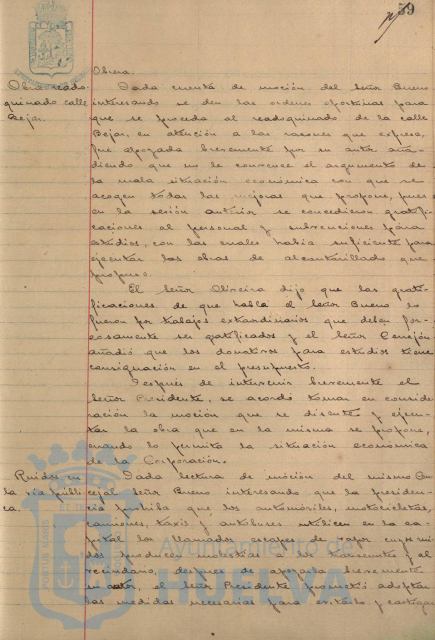 59
Obrera.
Obra readoquinado calle Bejar.
Dada cuenta de moción del Señor Bueno
interesando se den las ordenes oportunas para
que se proceda al readoquinado de la calle
Bejar, en atención a las razones que expresa,
fué apoyada brevemente por su autor aña-
diendo que no le convence el argumento de
la mala situación económica con que se
acogen todas las mejoras que propone, pues
en la sesión anterior se concedieron gratifi-
caciones al personal y subvenciones para
estudios, con las cuales habia suficiente para
ejecutar las obras de alcantarillado que
propuso.
El Señor Oliveira dijo que las grati-
ficaciones de que habla el Señor Bueno lo
fueron por trabajos extraordinarios que deben for-
zosamente ser gratificados y el Señor
añadió que los donativos para estudios tiene
consignación en el presupuesto.
Despues de intervenir brevemente el
Señor Presidente, se acordó tomar en conside-
ración la moción que se discute y ejecu-
tar la obra que en la misma se propone,
cuando lo permita la situación económica
de la Corporación.
Ruidos en
la vía públi-
ca.
Dada lectura de moción del mismo Con-
cejal Señor Bueno interesando que la presiden-
cia prohiba que los automóviles, motocicletas,
camiones, taxis y autobuses utilicen en la ca-
pital los llamados escapes de vapor cuyos rui-
dos producen molestias a los transeuntes y al
vecindario, despues de apoyarla brevemente
su autor, el Señor Presidente prometió adoptar
las medidas necesarias para evitarlo y castigar
Ayuntamiento de
HUELVA